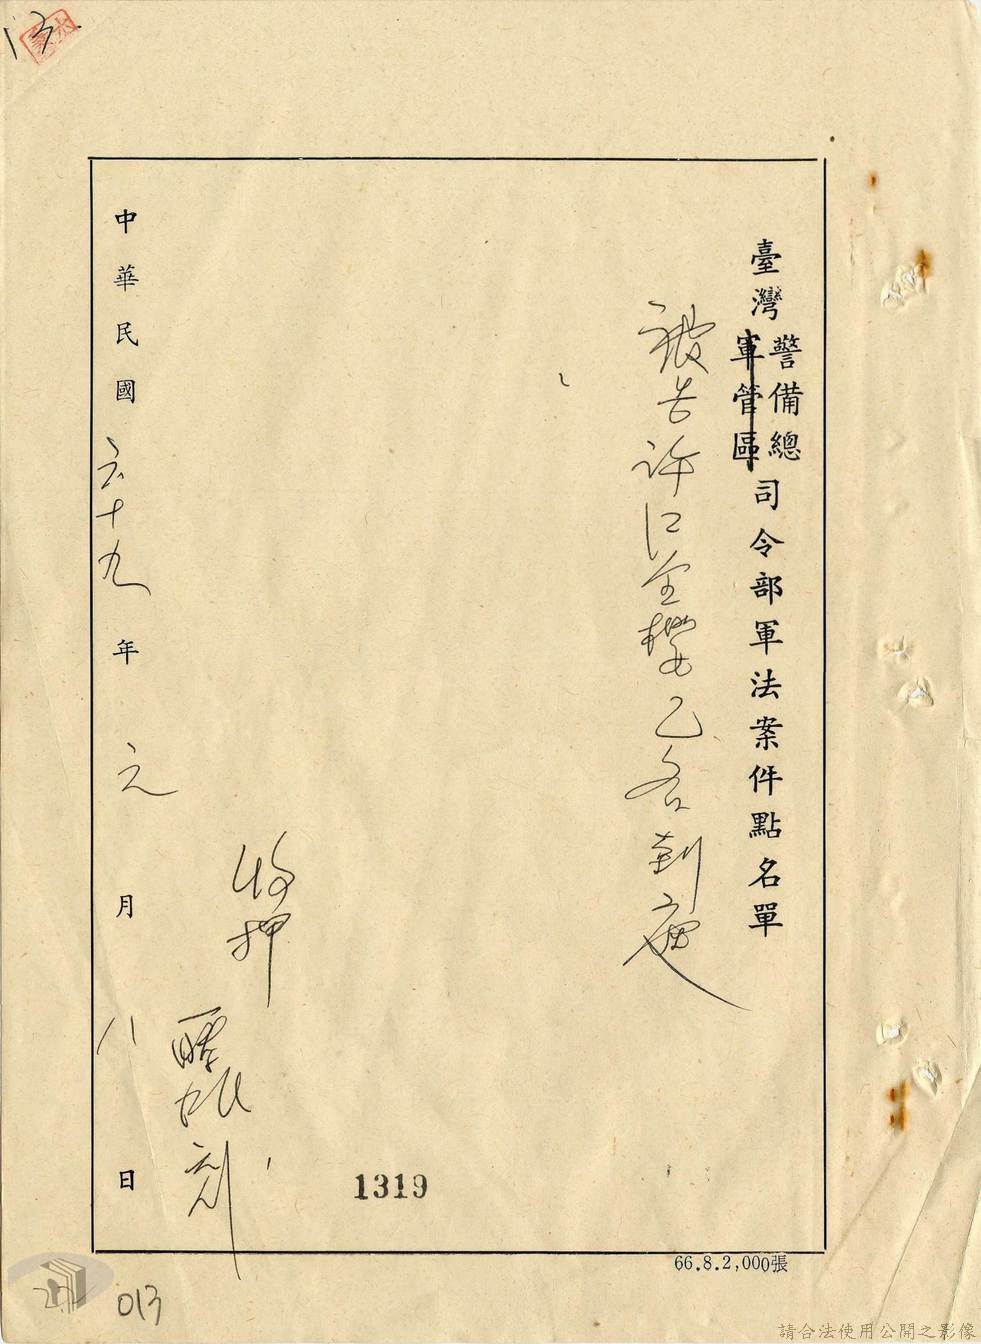 13
臺灣警備總軍管區司令部軍法案件點名單
被告許江金櫻乙名到庭
收押
中華民國六十九年元月八日
1319
66.8.2,000張
013
請合法使用公開之影像